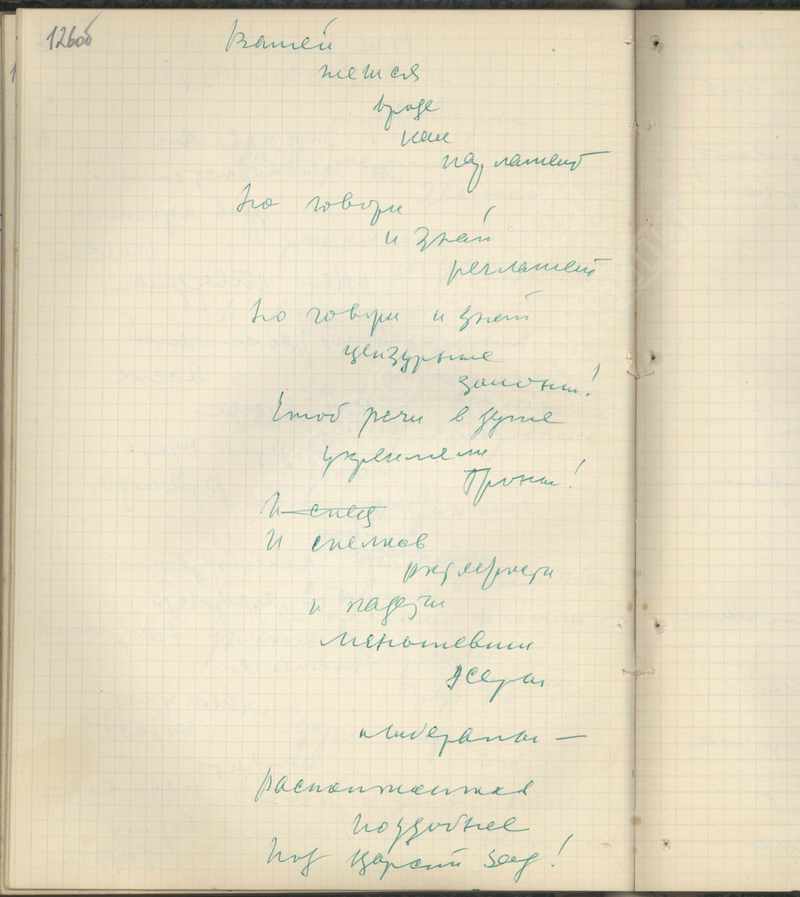 126об
Вашей
нется
вроде
как
парламент
Но говори
и знай
регламент
Но говори и знай
цензурные
законы!
Чтоб речи в духе
укрепляли
Троны!
И спец
И спелков
и надежд
меньшевики
эсеры
либералы —
расположился
поудобнее
Под царский зад!